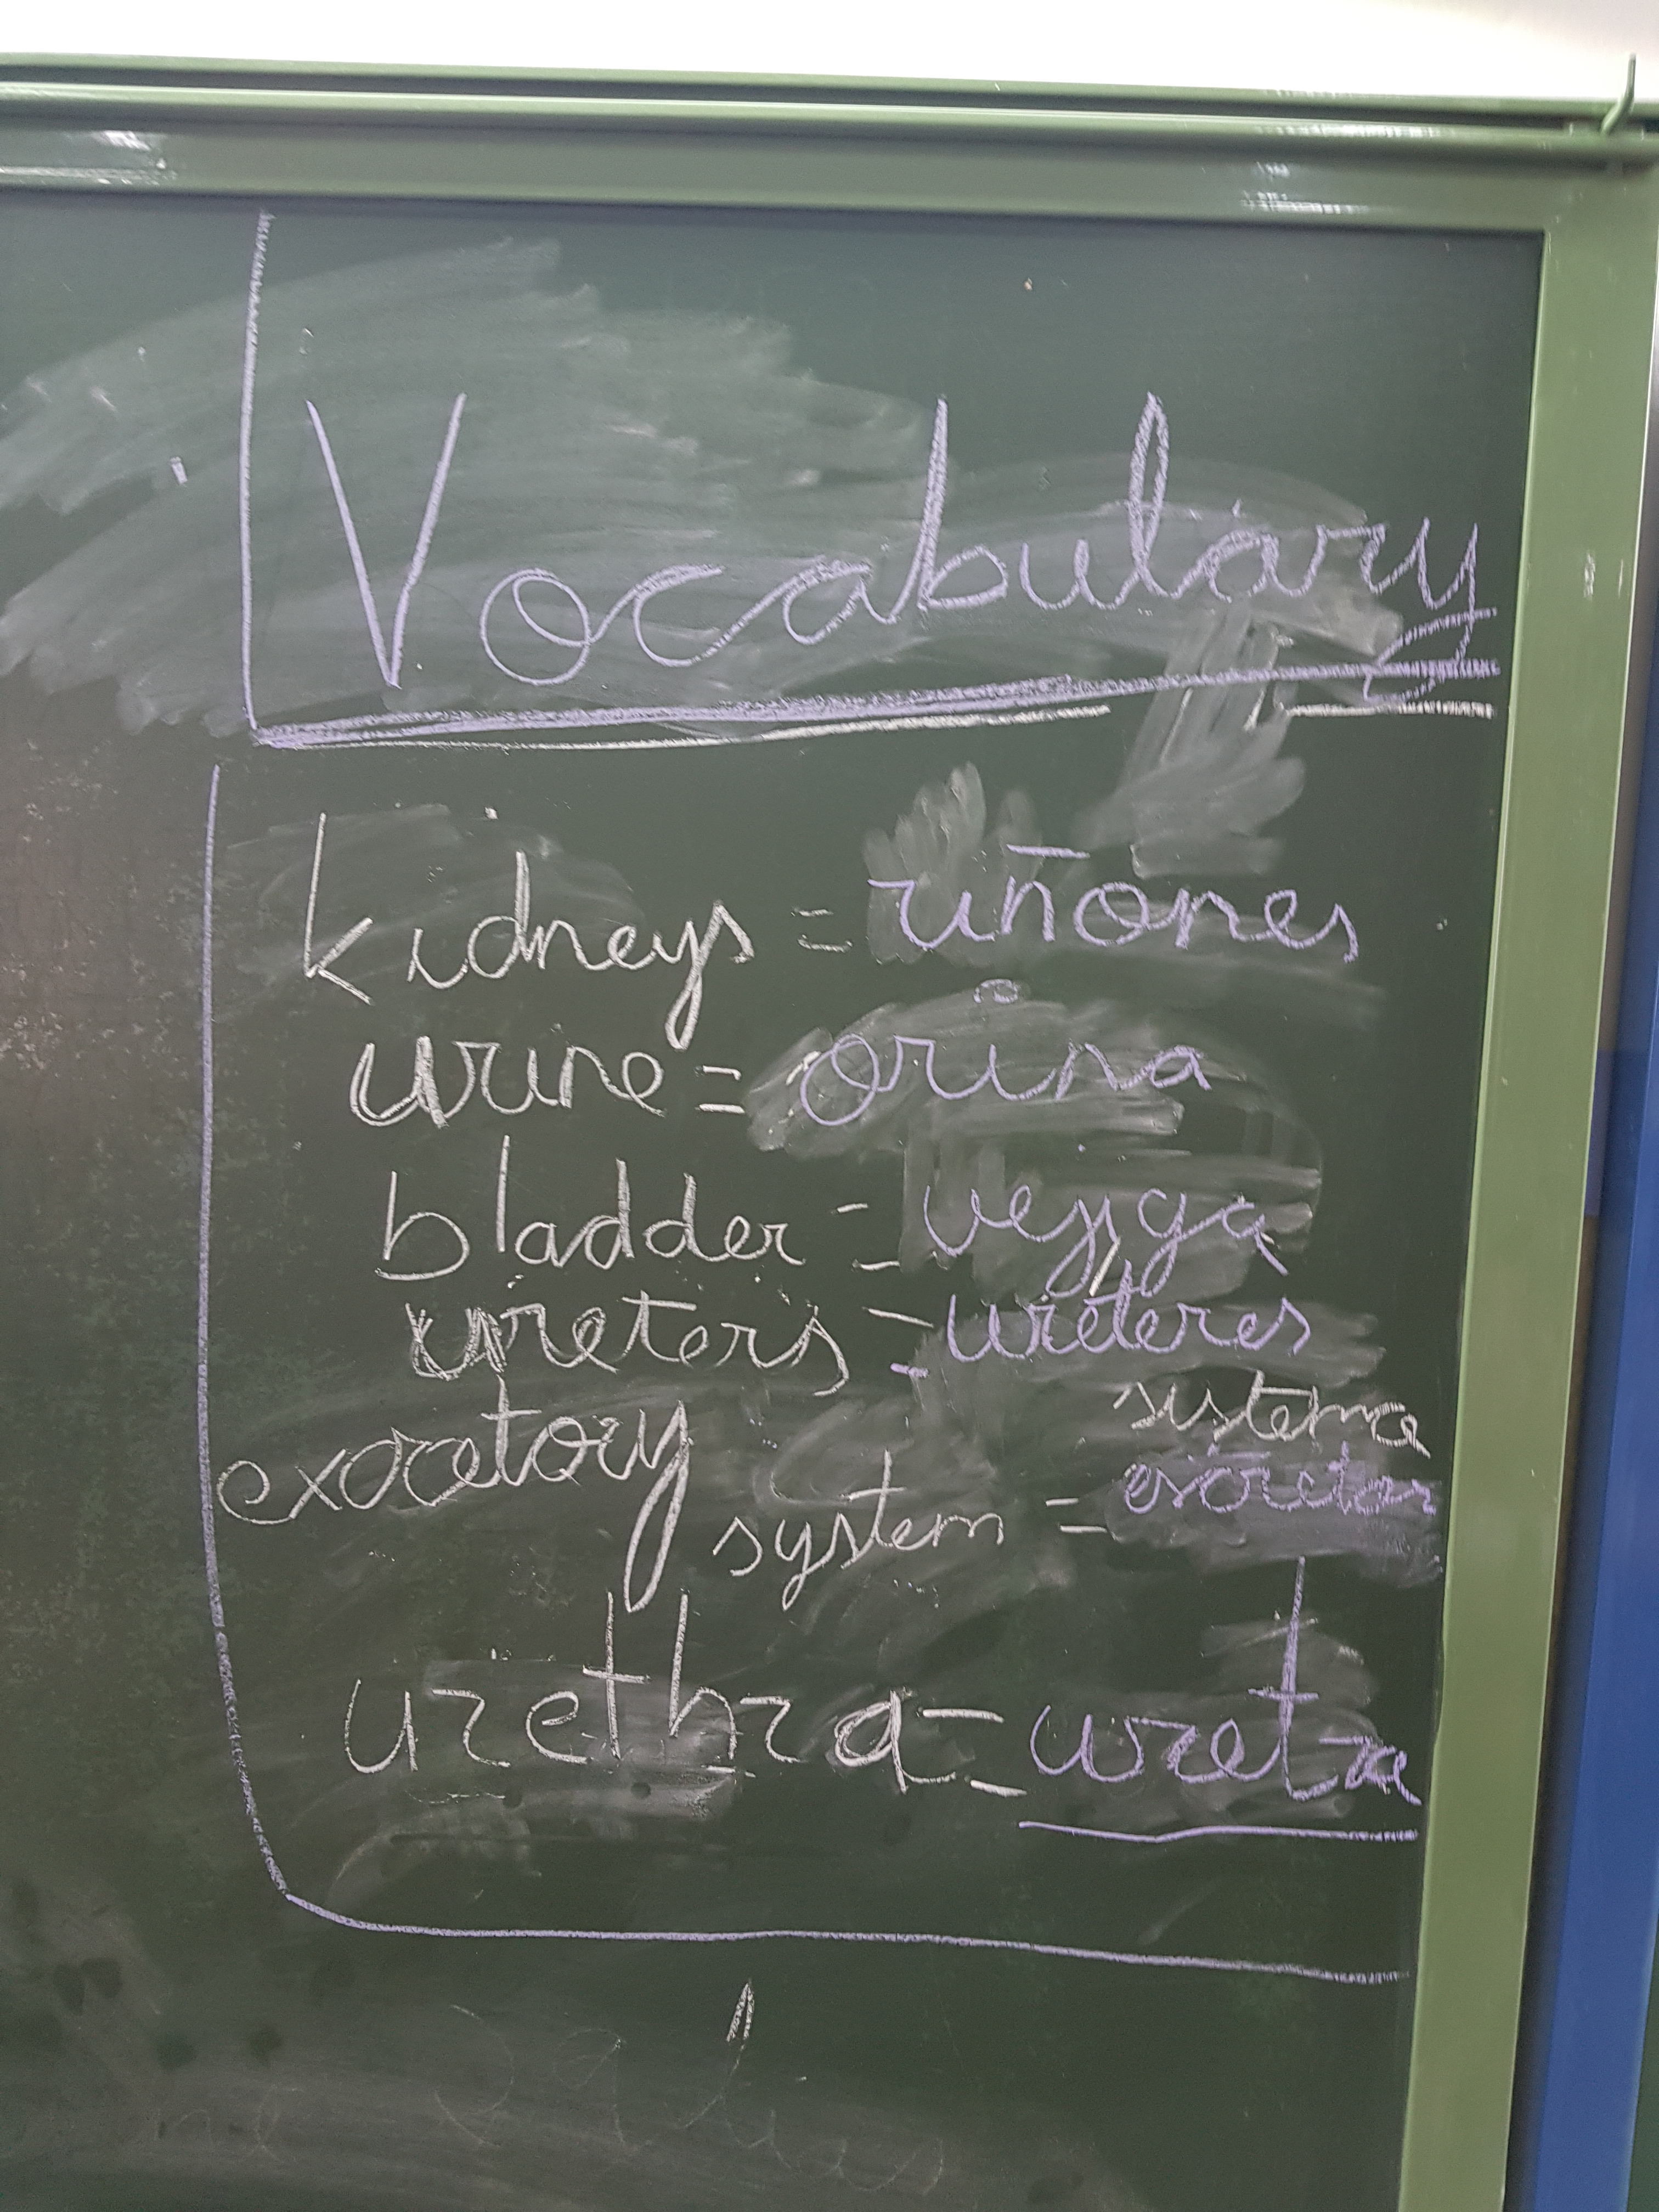 Vocabulary
kidneys = riñones
urine = orina
bladder = vejiga
ureters = uréteres
excretory system = sistema excretor
urethra = uretra